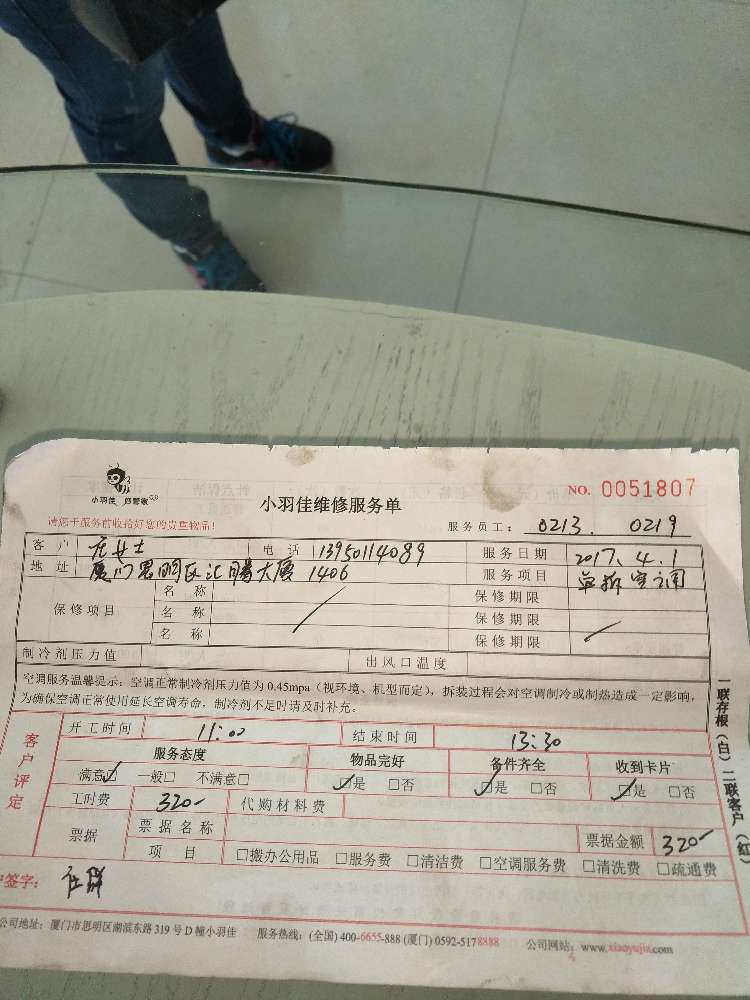 小羽佳 好管家
小羽佳维修服务单
NO. 0051807
请您于服务前收拾好您的贵重物品!
服务员工: 0213. 0219
客户 女士 电话 13950114089 服务日期 2017.4.1
地址 厦门思明区汇腾大厦 1406 服务项目 单拆空调
保修项目 名称 保修期限
名称 保修期限
名称 保修期限
制冷剂压力值 出风口温度
空调服务温馨提示:空调正常制冷剂压力值为0.45mpa(视环境、机型而定),拆装过程会对空调制冷或制热造成一定影响,
为确保空调正常使用延长空调寿命,制冷剂不足时请及时补充。
客户评定
开工时间 11:00 结束时间 13:30
服务态度 物品完好 备件齐全 收到卡片
满意☑ 一般□ 不满意□ ☑是 □否 ☑是 □否 ☑是 □否
工时费 320- 代购材料费
票据 票据名称 票据金额 320-
项目 □搬办公用品 □服务费 □清洁费 □空调服务费 □清洗费 □疏通费
签字:
公司地址:厦门市思明区湖滨东路319号D幢小羽佳 服务热线:(全国)400-6655-888 (厦门)0592-5178888 公司网站:www.xiaoyujia.com
一联存根(白)二联客户(红)